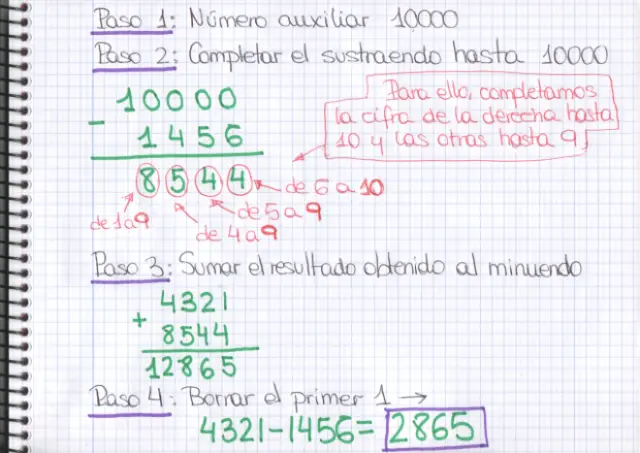 Paso 1: Número auxiliar 10000
Paso 2: Completar el sustraendo hasta 10000
10000
Para ello, completamos
- 1456
la cifra de la derecha hasta
10 y las otras hasta 9
8544
de 6 a 10
de 5 a 9
de 1 a 9
de 4 a 9
Paso 3: Sumar el resultado obtenido al minuendo
4321
+ 8544
12865
Paso 4: Borrar el primer 1 →
4321-1456= 2865